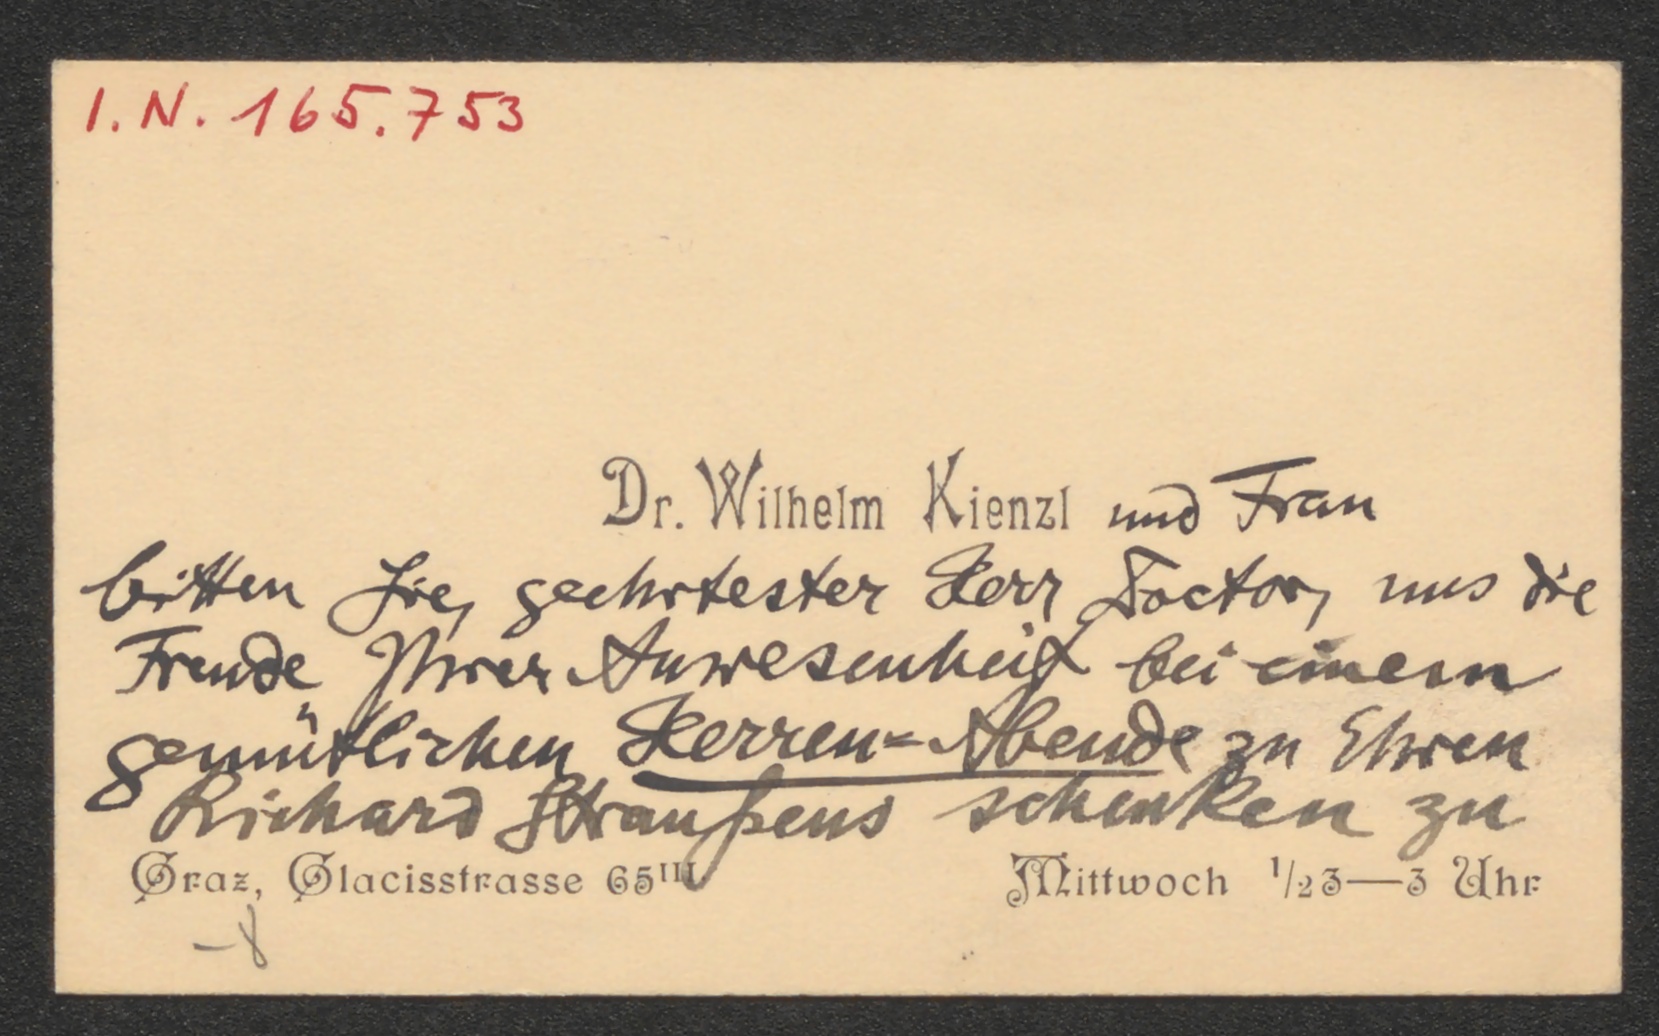 I.N. 165.753
Dr. Wilhelm Kienzl und Frau
bitten Sie, geehrtester Herr Doctor, uns die
Freude Ihrer Anwesenheit bei einem
gemütlichen Herren-Abende zu Ehren
Richard Straußens schenken zu
Graz, Glacisstrasse 65III
Mittwoch 1/23—3 Uhr